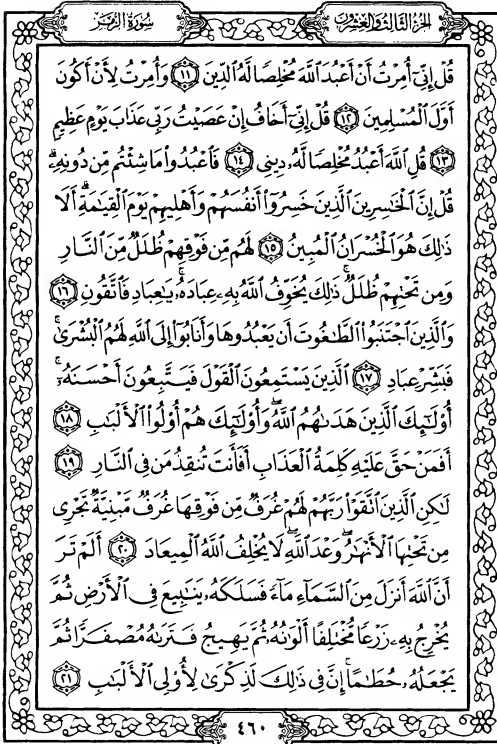 سُورَةُ الزُّمَرِ
الجُزْءُ الثَّالِثُ وَالعِشْرُونَ
قُلْ إِنِّىٓ أُمِرْتُ أَنْ أَعْبُدَ ٱللَّهَ مُخْلِصًا لَّهُ ٱلدِّينَ ١١ وَأُمِرْتُ لِأَنْ أَكُونَ
أَوَّلَ ٱلْمُسْلِمِينَ ١٢ قُلْ إِنِّىٓ أَخَافُ إِنْ عَصَيْتُ رَبِّى عَذَابَ يَوْمٍ عَظِيمٍ
١٣ قُلِ ٱللَّهَ أَعْبُدُ مُخْلِصًا لَّهُۥ دِينِى ١٤ فَٱعْبُدُوا۟ مَا شِئْتُم مِّن دُونِهِۦ ۗ
قُلْ إِنَّ ٱلْخَـٰسِرِينَ ٱلَّذِينَ خَسِرُوٓا۟ أَنفُسَهُمْ وَأَهْلِيهِمْ يَوْمَ ٱلْقِيَـٰمَةِ ۗ أَلَا
ذَٰلِكَ هُوَ ٱلْخُسْرَانُ ٱلْمُبِينُ ١٥ لَهُم مِّن فَوْقِهِمْ ظُلَلٌ مِّنَ ٱلنَّارِ
وَمِن تَحْتِهِمْ ظُلَلٌ ۚ ذَٰلِكَ يُخَوِّفُ ٱللَّهُ بِهِۦ عِبَادَهُۥ ۚ يَـٰعِبَادِ فَٱتَّقُونِ ١٦
وَٱلَّذِينَ ٱجْتَنَبُوا۟ ٱلطَّـٰغُوتَ أَن يَعْبُدُوهَا وَأَنَابُوٓا۟ إِلَى ٱللَّهِ لَهُمُ ٱلْبُشْرَىٰ ۚ
فَبَشِّرْ عِبَادِ ١٧ ٱلَّذِينَ يَسْتَمِعُونَ ٱلْقَوْلَ فَيَتَّبِعُونَ أَحْسَنَهُۥٓ ۚ
أُو۟لَـٰٓئِكَ ٱلَّذِينَ هَدَىٰهُمُ ٱللَّهُ ۖ وَأُو۟لَـٰٓئِكَ هُمْ أُو۟لُوا۟ ٱلْأَلْبَـٰبِ ١٨
أَفَمَنْ حَقَّ عَلَيْهِ كَلِمَةُ ٱلْعَذَابِ أَفَأَنتَ تُنقِذُ مَن فِى ٱلنَّارِ ١٩
لَـٰكِنِ ٱلَّذِينَ ٱتَّقَوْا۟ رَبَّهُمْ لَهُمْ غُرَفٌ مِّن فَوْقِهَا غُرَفٌ مَّبْنِيَّةٌ تَجْرِى
مِن تَحْتِهَا ٱلْأَنْهَـٰرُ ۖ وَعْدَ ٱللَّهِ ۖ لَا يُخْلِفُ ٱللَّهُ ٱلْمِيعَادَ ٢٠ أَلَمْ تَرَ
أَنَّ ٱللَّهَ أَنزَلَ مِنَ ٱلسَّمَآءِ مَآءً فَسَلَكَهُۥ يَنَـٰبِيعَ فِى ٱلْأَرْضِ ثُمَّ
يُخْرِجُ بِهِۦ زَرْعًا مُّخْتَلِفًا أَلْوَٰنُهُۥ ثُمَّ يَهِيجُ فَتَرَىٰهُ مُصْفَرًّا ثُمَّ
يَجْعَلُهُۥ حُطَـٰمًا ۚ إِنَّ فِى ذَٰلِكَ لَذِكْرَىٰ لِأُو۟لِى ٱلْأَلْبَـٰبِ ٢١
٤٦٠